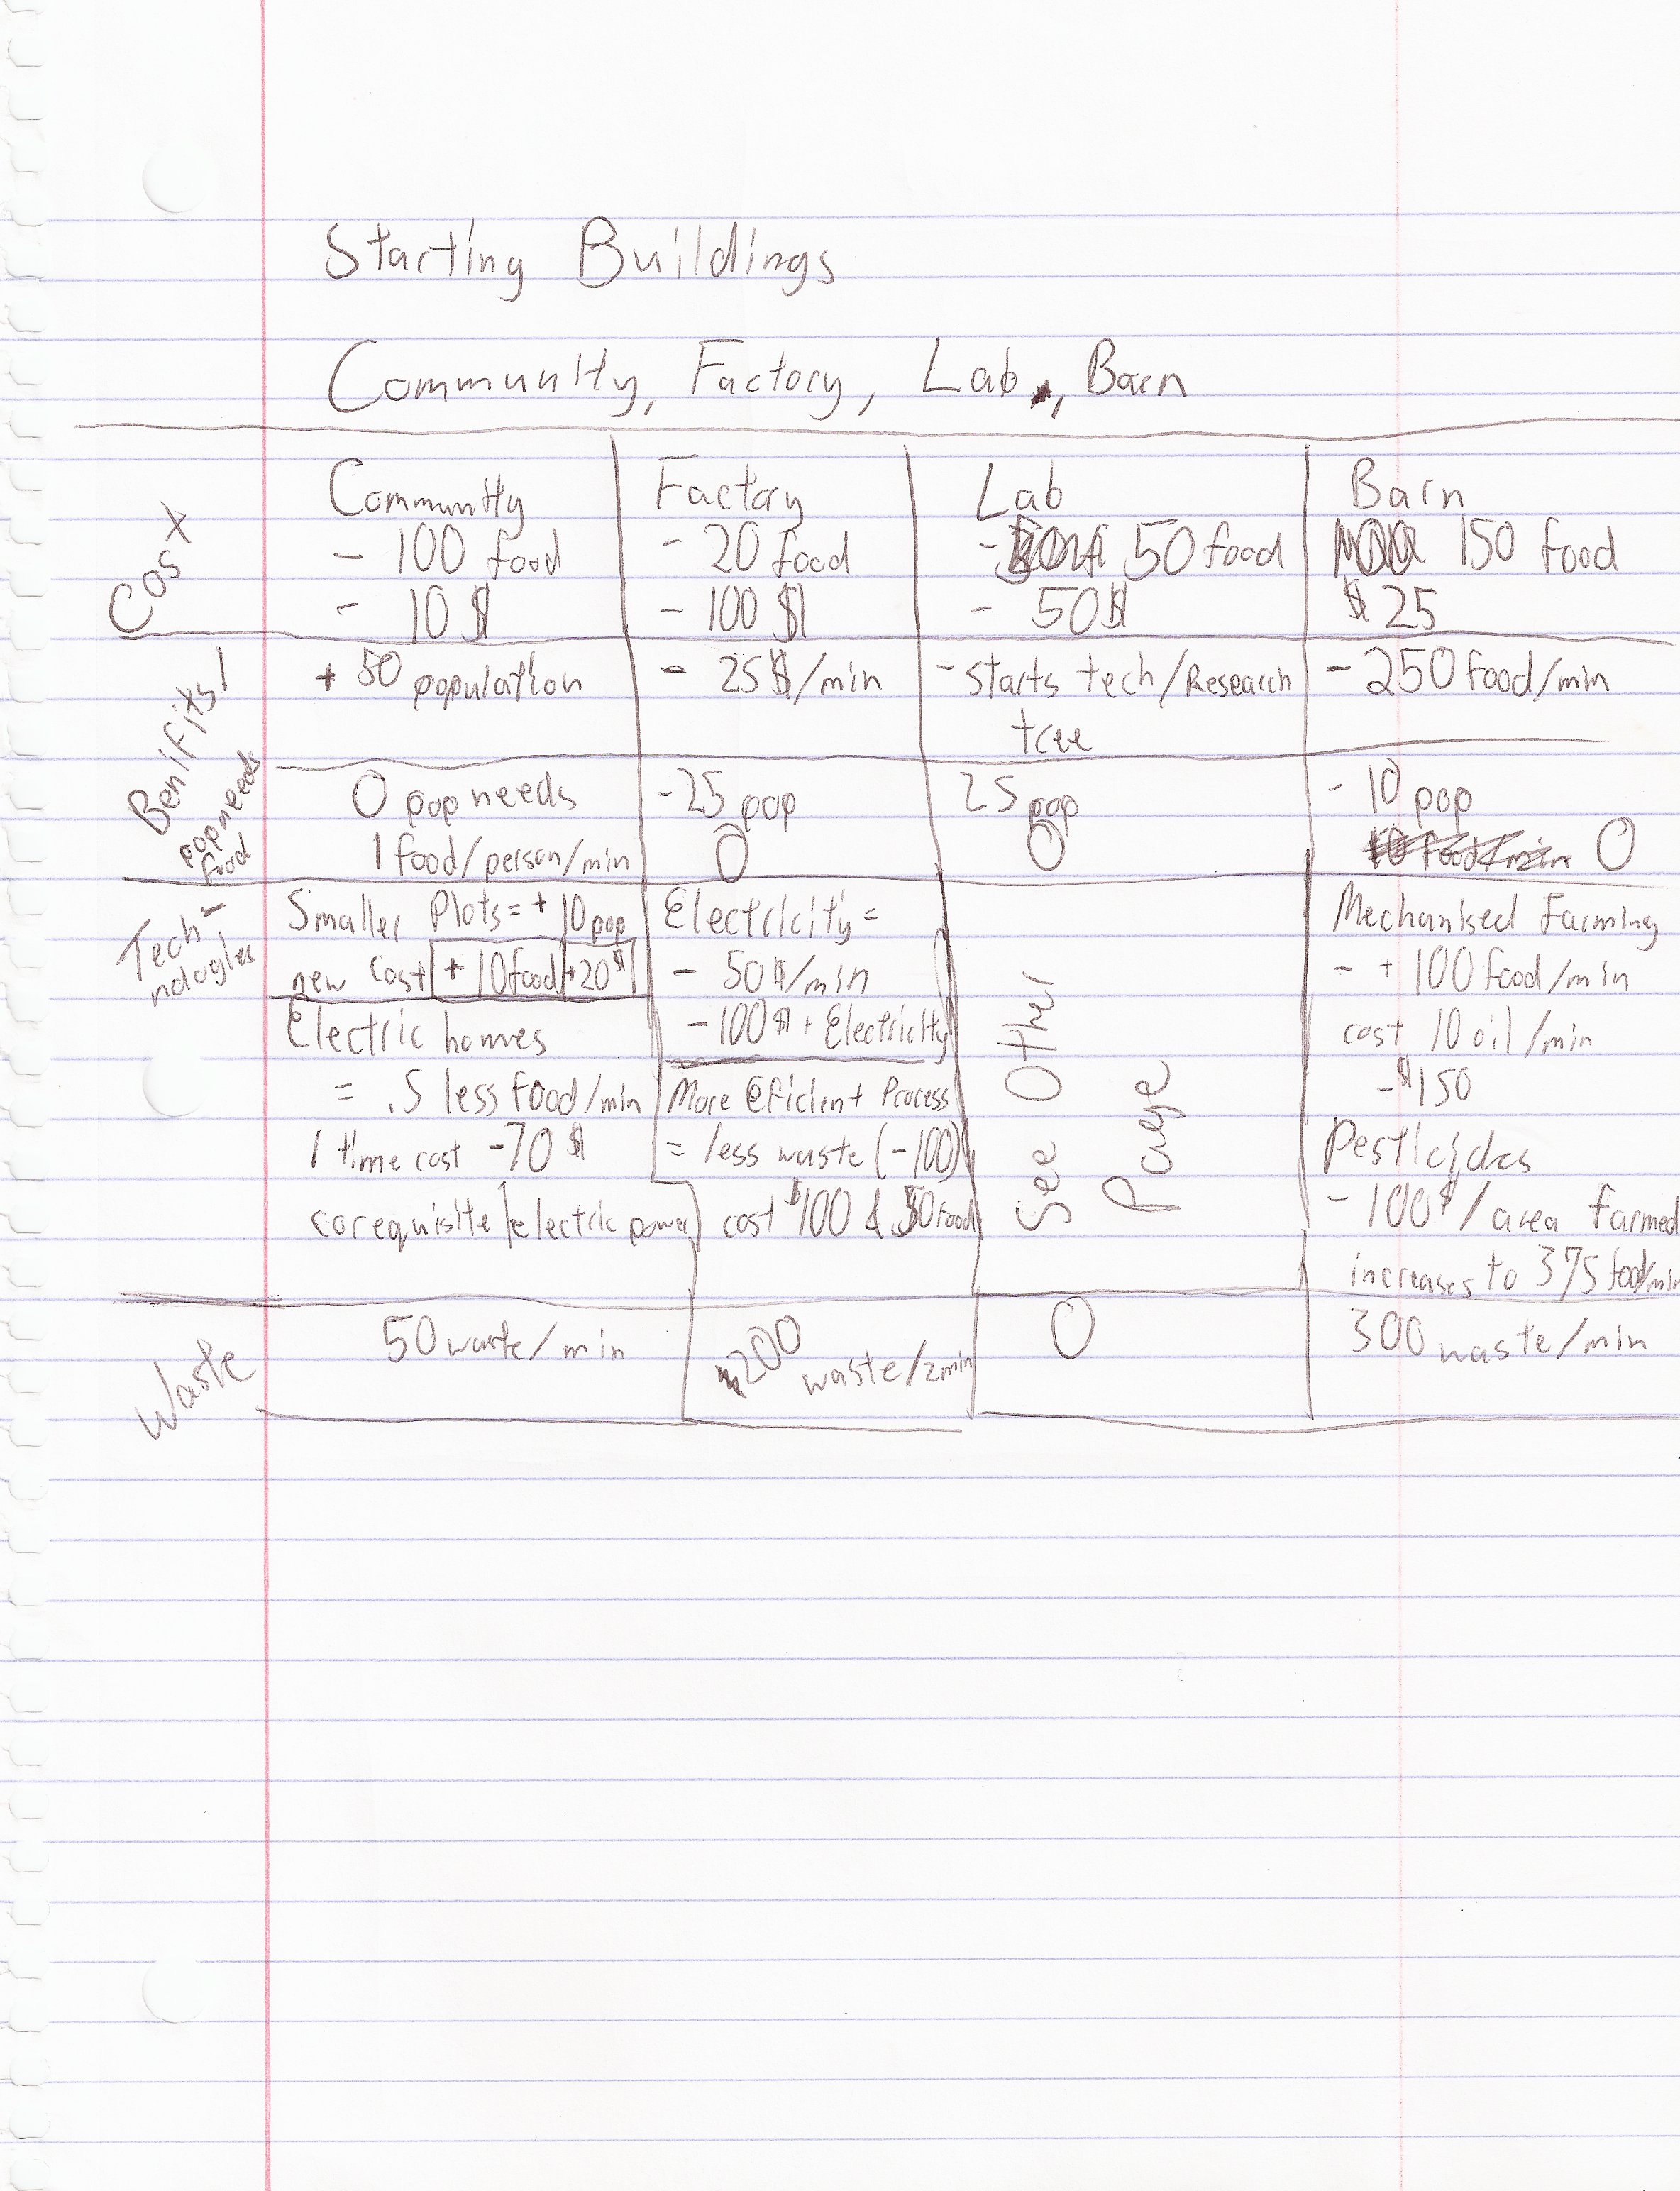 Starting Buildings
Community, Factory, Lab, Barn
Cost
Community
- 100 food
- 10 $
Factory
- 20 food
- 100 $
Lab
- 50 food
- 50 $
Barn
150 food
$ 25
Benifits!
+ 50 population
- 25 $/min
- starts tech/Research
tree
- 250 food/min
pop needs
food
0 pop needs
1 food/person/min
- 25 pop
0
25 pop
0
- 10 pop
0
Tech-
nologies
Smaller Plots = + 10 pop
new cost + 10 food +20 $
Electric homes
= .5 less food/min
1 time cost -70 $
corequisite electric power
Electricity =
- 50 $/min
- 100 $ + Electricity
More Eficient Process
= less waste (-100)
cost $100 & 50 food
See Other
Page
Mechanised Farming
- + 100 food/min
cost 10 oil/min
- $150
Pesticides
- 100 $/area farmed
increases to 375 food/min
Waste
50 waste/min
200
waste/2min
0
300 waste/min